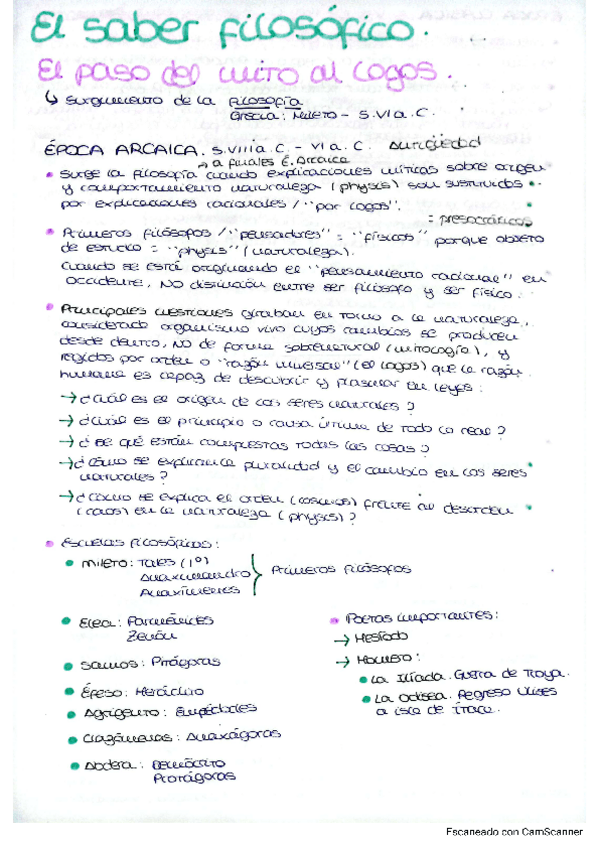 El saber filosófico.
El paso del mito al logos.
↳ surgimiento de la Filosofía
Grecia: Mileto - S.VI a.C.
ÉPOCA ARCAICA. S.VIII a.C - VI a.C. Antigüedad
→ a finales É. Arcaica
• Surge la filosofía cuando explicaciones míticas sobre origen
y comportamiento naturaleza (physis) son sustituidas
por explicaciones racionales / "por logos".
= presocráticos
• Primeros filósofos / "pensadores" = "físicos" porque objeto
de estudio = "physis" (naturaleza).
Cuando se está originando el "pensamiento racional" en
occidente, NO distinción entre ser filósofo y ser físico.
• Principales cuestiones giraban en torno a la naturaleza,
considerada organismo vivo cuyos cambios se producen
desde dentro, NO de forma sobrenatural (mitología), y
regidos por orden o "razón universal" (el logos) que la razón
humana es capaz de descubrir y plasmar en leyes:
→ ¿Cuál es el origen de los seres naturales?
→ ¿Cuál es el principio o causa última de todo lo real?
→ ¿De qué están compuestas todas las cosas?
→ ¿Cómo se explica la pluralidad y el cambio en los seres
naturales?
→ ¿Cómo se explica el orden (cosmos) frente al desorden
(caos) en la naturaleza (physis)?
• Escuelas filosóficas:
• Mileto: Tales (1º)
Anaximandro
Anaxímenes
Primeros filósofos
• Elea: Parménides
Zenón
• Samos: Pitágoras
• Éfeso: Heráclito
• Agrigento: Empédocles
• Clazómenas: Anaxágoras
• Abdera: Demócrito
Protágoras
• Poetas importantes:
→ Hesíodo
→ Homero:
• La Ilíada. Guerra de Troya.
• La Odisea. Regreso Ulises
a isla de Ítaca.
Escaneado con CamScanner